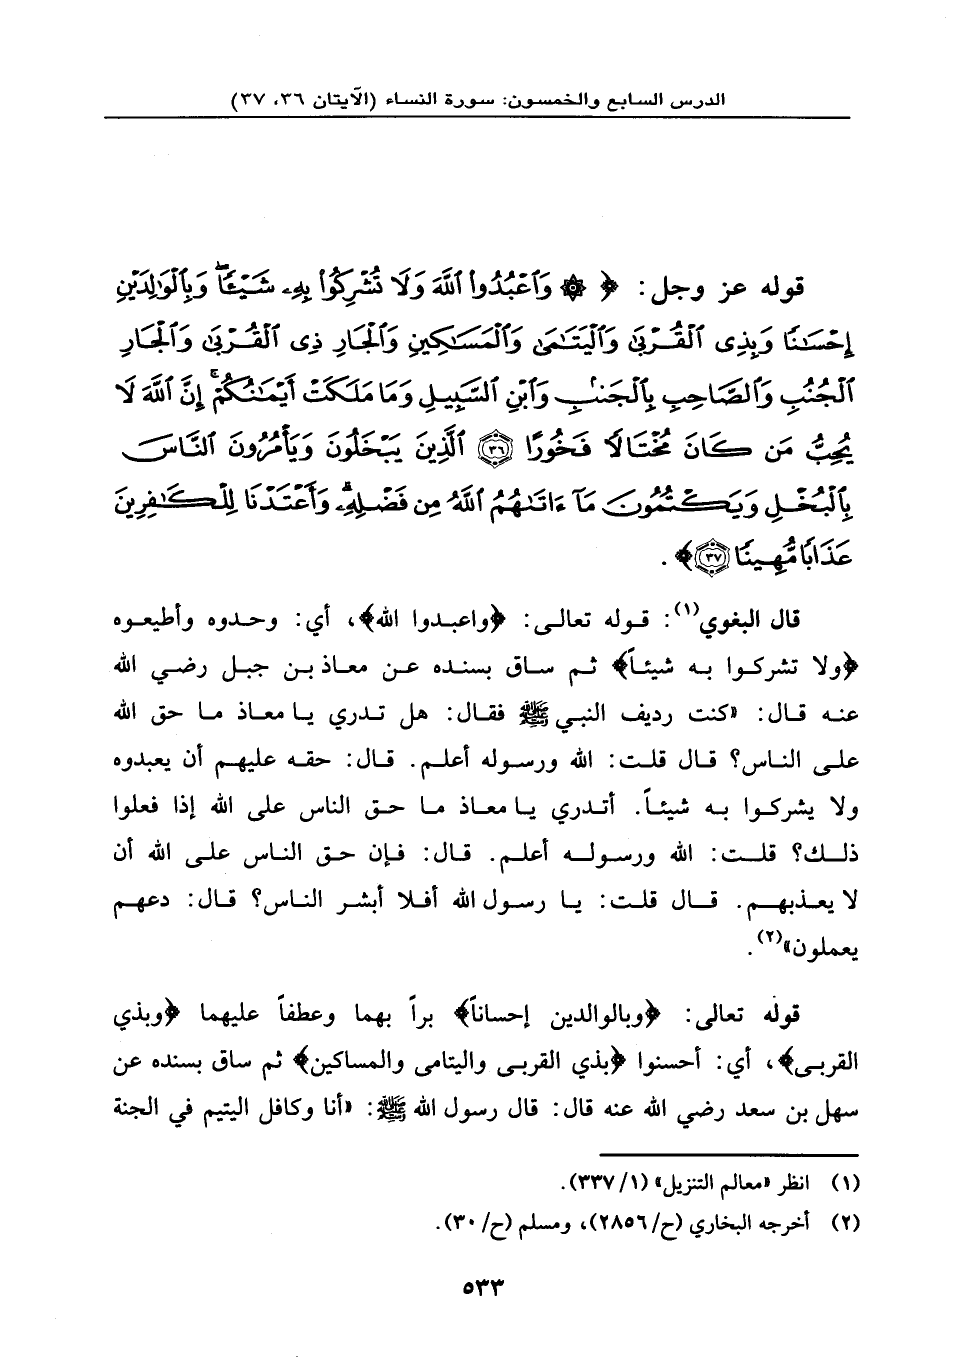 الدرس السابع والخمسون: سورة النساء (الآيتان ٣٦، ٣٧)
قوله عز وجل: ﴿ ۞ وَٱعْبُدُوا۟ ٱللَّهَ وَلَا تُشْرِكُوا۟ بِهِۦ شَيْـًٔا ۖ وَبِٱلْوَٰلِدَيْنِ
إِحْسَٰنًا وَبِذِى ٱلْقُرْبَىٰ وَٱلْيَتَٰمَىٰ وَٱلْمَسَٰكِينِ وَٱلْجَارِ ذِى ٱلْقُرْبَىٰ وَٱلْجَارِ
ٱلْجُنُبِ وَٱلصَّاحِبِ بِٱلْجَنۢبِ وَٱبْنِ ٱلسَّبِيلِ وَمَا مَلَكَتْ أَيْمَٰنُكُمْ ۗ إِنَّ ٱللَّهَ لَا
يُحِبُّ مَن كَانَ مُخْتَالًا فَخُورًا ٣٦ ٱلَّذِينَ يَبْخَلُونَ وَيَأْمُرُونَ ٱلنَّاسَ
بِٱلْبُخْلِ وَيَكْتُمُونَ مَآ ءَاتَىٰهُمُ ٱللَّهُ مِن فَضْلِهِۦ ۗ وَأَعْتَدْنَا لِلْكَٰفِرِينَ
عَذَابًا مُّهِينًا ٣٧ ﴾ .
قال البغوي(١): قوله تعالى: ﴿واعبدوا الله﴾، أي: وحدوه وأطيعوه
﴿ولا تشركوا به شيئاً﴾ ثم ساق بسنده عن معاذ بن جبل رضي الله
عنه قال: «كنت رديف النبي ﷺ فقال: هل تدري يا معاذ ما حق الله
على الناس؟ قال قلت: الله ورسوله أعلم. قال: حقه عليهم أن يعبدوه
ولا يشركوا به شيئاً. أتدري يا معاذ ما حق الناس على الله إذا فعلوا
ذلك؟ قلت: الله ورسوله أعلم. قال: فإن حق الناس على الله أن
لا يعذبهم. قال قلت: يا رسول الله أفلا أبشر الناس؟ قال: دعهم
يعملون»(٢).
قوله تعالى: ﴿وبالوالدين إحساناً﴾ براً بهما وعطفاً عليهما ﴿وبذي
القربى﴾، أي: أحسنوا ﴿بذي القربى واليتامى والمساكين﴾ ثم ساق بسنده عن
سهل بن سعد رضي الله عنه قال: قال رسول الله ﷺ: «أنا وكافل اليتيم في الجنة
(١) انظر «معالم التنزيل» (١/ ٣٣٧).
(٢) أخرجه البخاري (ح/ ٢٨٥٦)، ومسلم (ح/ ٣٠).
٥٣٣